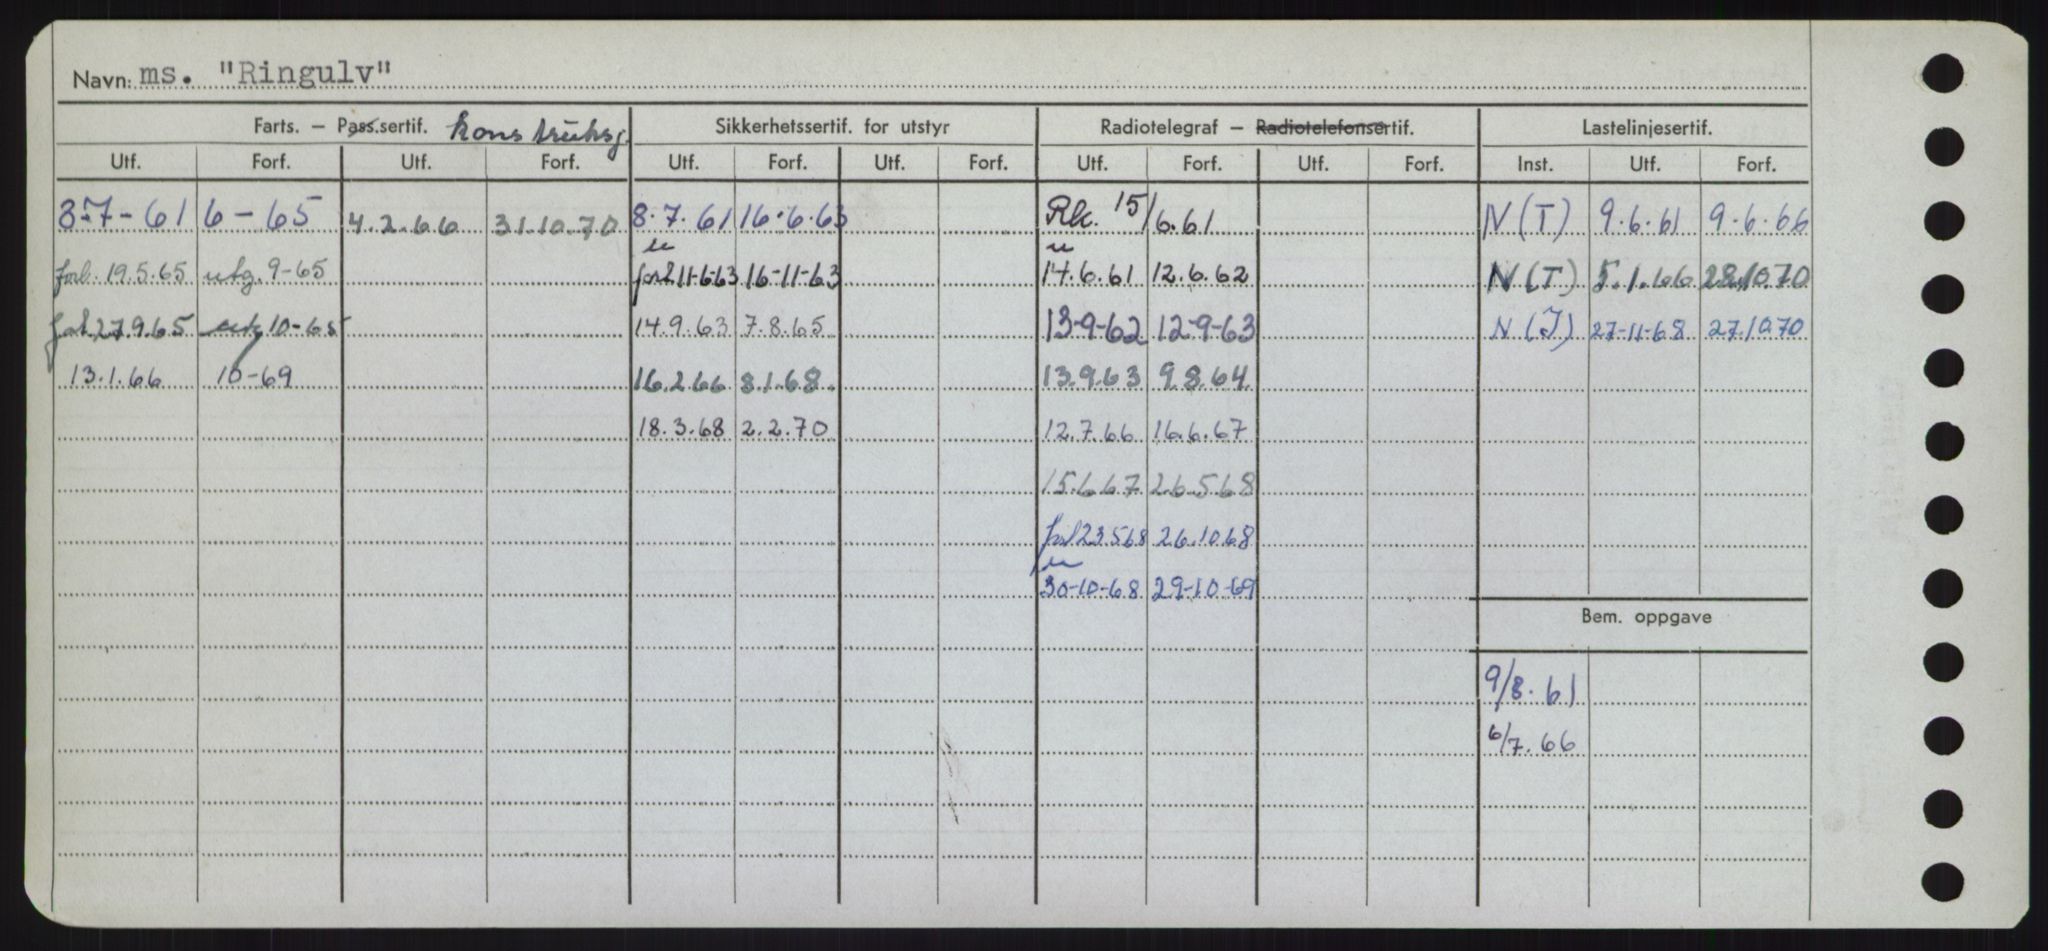 Navn: ms. "Ringulv"
Farts. – Pass.sertif. konstruksj. Sikkerhetssertif. for utstyr Radiotelegraf – Radiotelefonsertif. Lastelinjesertif.
Utf. Forf. Utf. Forf. Utf. Forf. Utf. Forf. Utf. Forf. Utf. Forf. Inst. Utf. Forf.
8-7-61 6-65 4.2.66 31.10.70 8.7.61 16.6.63 Rk. 15/6.61 N(T) 9.6.61 9.6.66
u u
forl. 19.5.65 utg. 9-65 forl 11-6-63 16-11-63 14.6.61 12.6.62 N(T) 5.1.66 28.10.70
forl 27.9.65 utg 10-65 14.9.63 7.8.65 13-9-62 12-9-63 N(T) 27-11-68 27.10.70
13.1.66 10-69 16.2.66 8.1.68 13.9.63 9.8.64
18.3.68 2.2.70 12.7.66 16.6.67
15.6.67 26.5.68
forl 23.5.68 26.10.68
u
30-10-68 29-10-69
Bem. oppgave
9/8.61
6/7.66